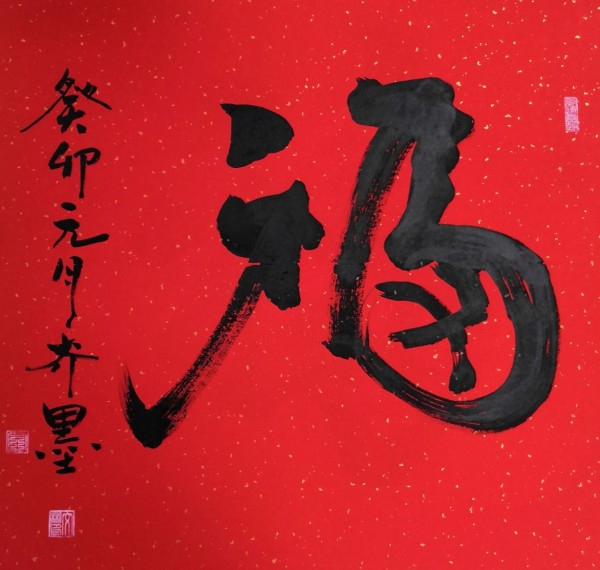 福
癸卯元月
墨